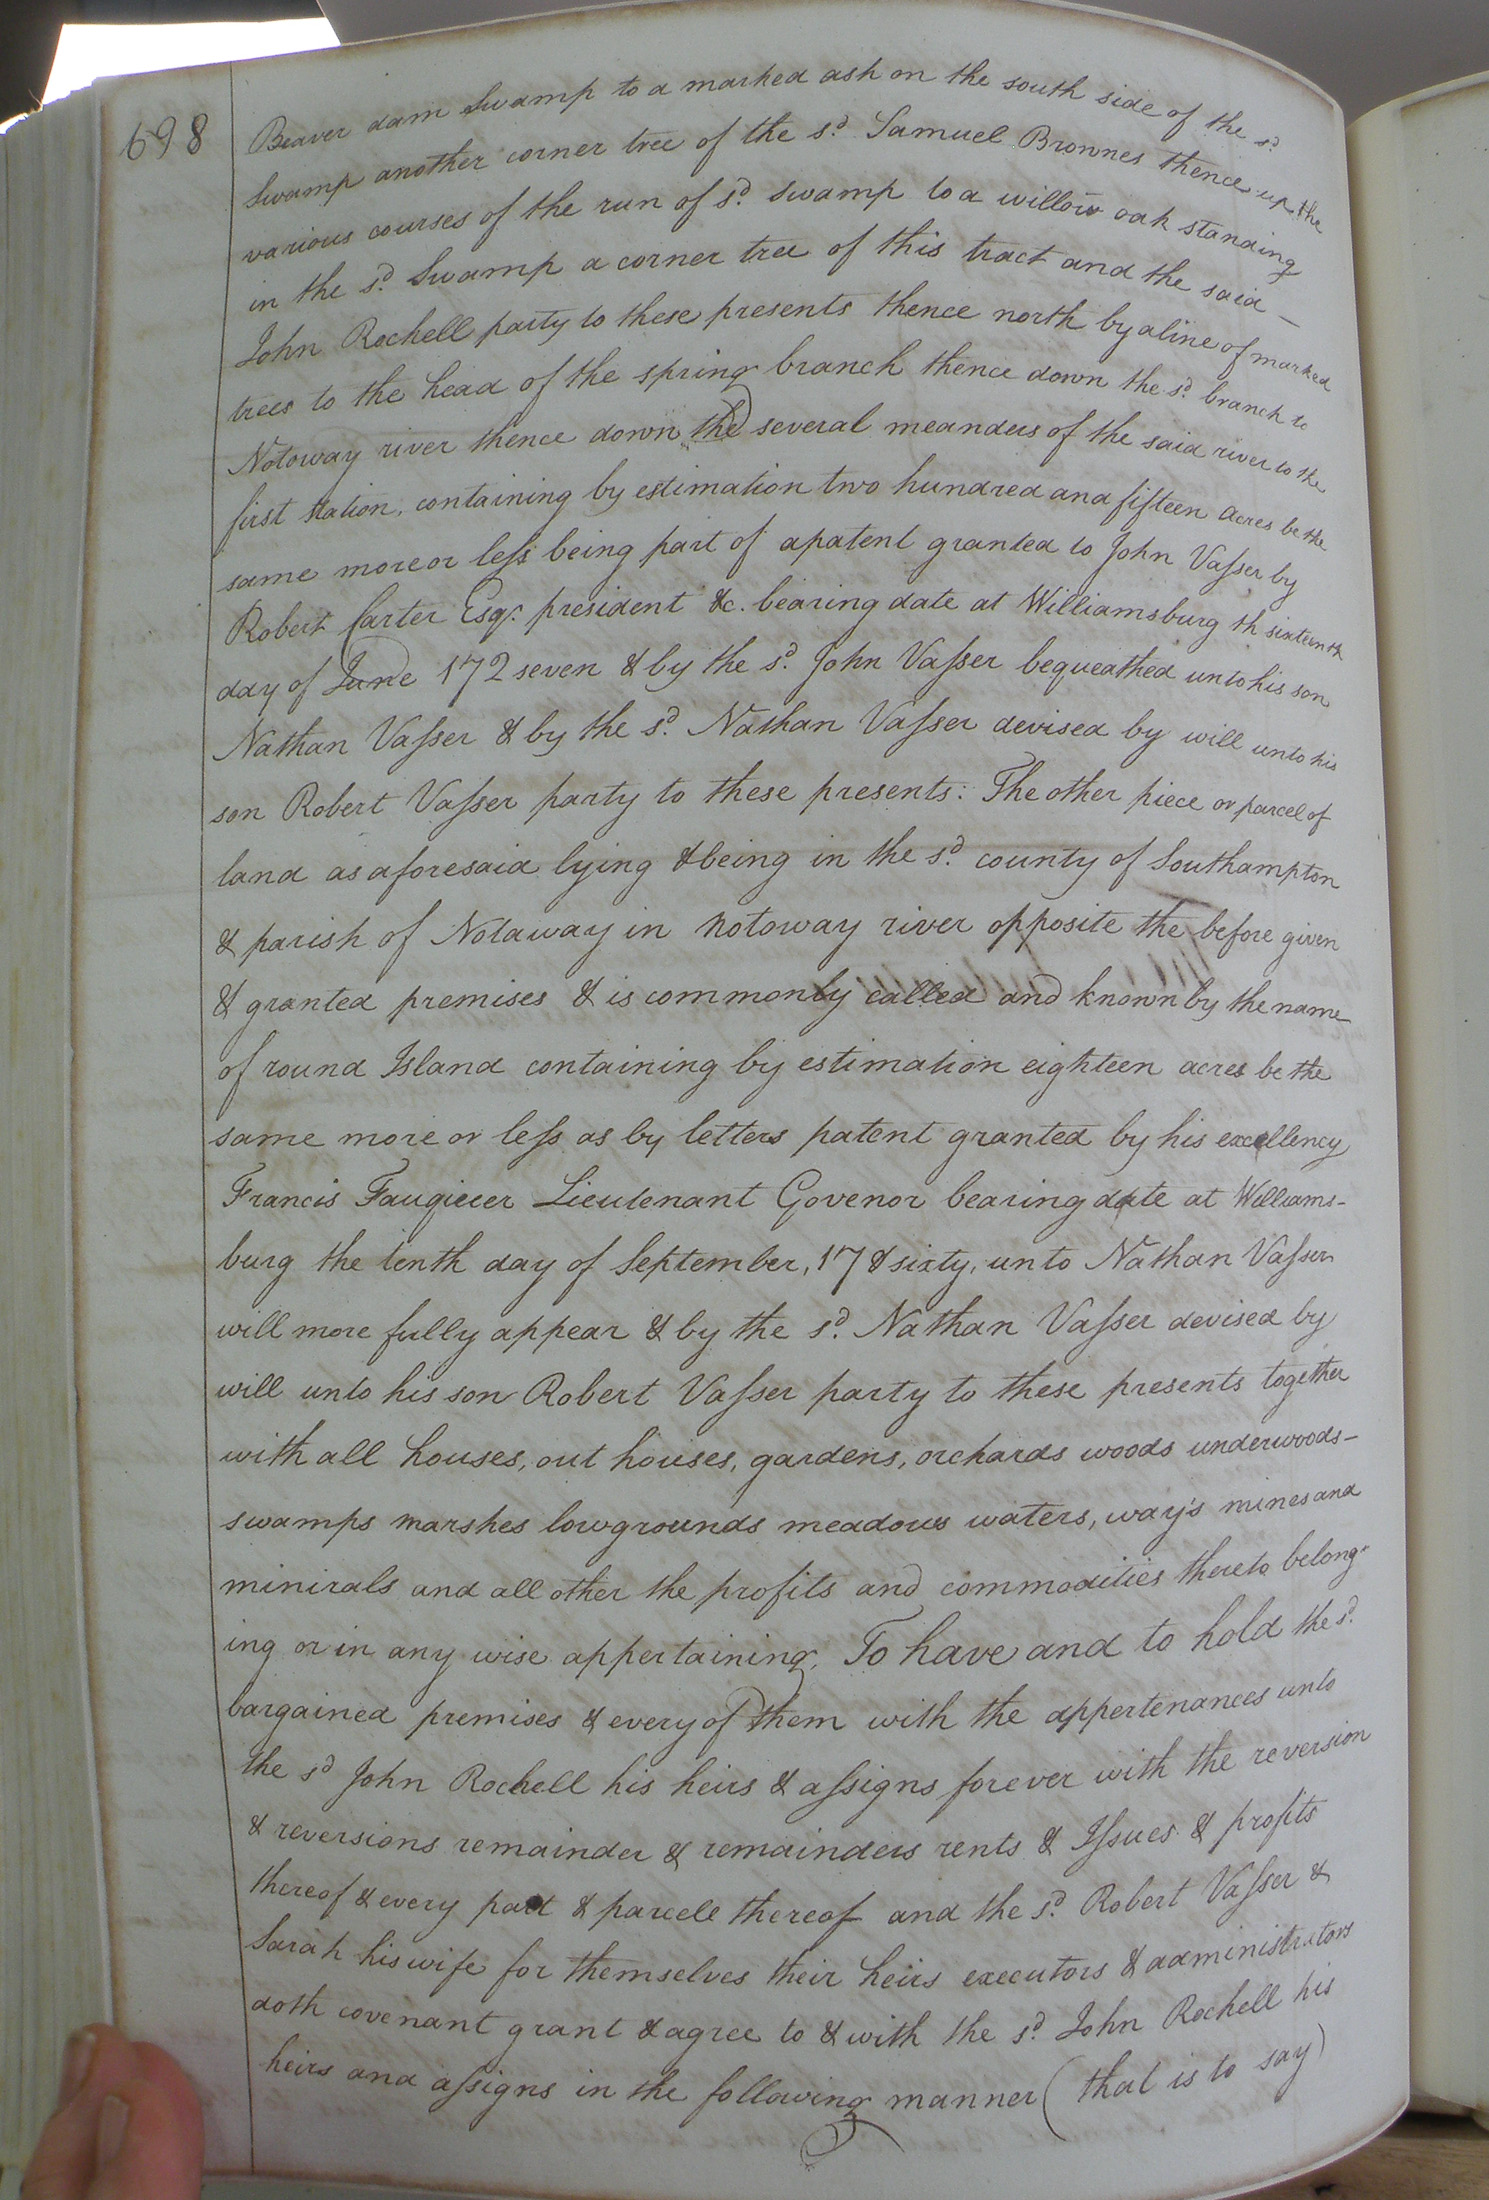 698
Beaver dam Swamp to a marked ash on the south side of the sd.
Swamp another corner tree of the sd. Samuel Brownes thence up the
various courses of the run of sd. swamp to a willow oak standing
in the sd. Swamp a corner tree of this tract and the said —
John Rochell party to these presents thence north by a line of marked
trees to the head of the spring branch thence down the sd. branch to
Notoway river thence down the several meanders of the said river to the
first station, containing by estimation two hundred and fifteen acres be the
same more or less being part of a patent granted to John Vasser by
Robert Carter Esqr. president &c. bearing date at Williamsburg th sixteenth
day of June 172 seven & by the sd. John Vasser bequeathed unto his son
Nathan Vasser & by the sd. Nathan Vasser devised by will unto his
son Robert Vasser party to these presents: The other piece or parcel of
land as aforesaid lying & being in the sd. county of Southampton
& parish of Notaway in Notoway river opposite the before given
& granted premises & is commonly called and known by the name
of round Island containing by estimation eighteen acres be the
same more or less as by letters patent granted by his excellency
Francis Fauquier Lieutenant Govenor bearing date at Williams-
burg the tenth day of September, 17 & sixty, unto Nathan Vasser
will more fully appear & by the sd. Nathan Vasser devised by
will unto his son Robert Vasser party to these presents together
with all houses, out houses, gardens, orchards woods underwoods-
swamps marshes lowgrounds meadows waters, way's mines and
minirals and all other the profits and commodities thereto belong-
ing or in any wise appertaining, To have and to hold the sd.
bargained premises & every of them with the appertenances unto
the sd John Rochell his heirs & assigns forever with the reversion
& reversions remainder & remainders rents & Issues & profits
thereof & every part & parcele thereof and the sd. Robert Vasser &
Sarah his wife for themselves their heirs executors & administrators
doth covenant grant & agree to & with the sd. John Rochell his
heirs and assigns in the following manner (that is to say)